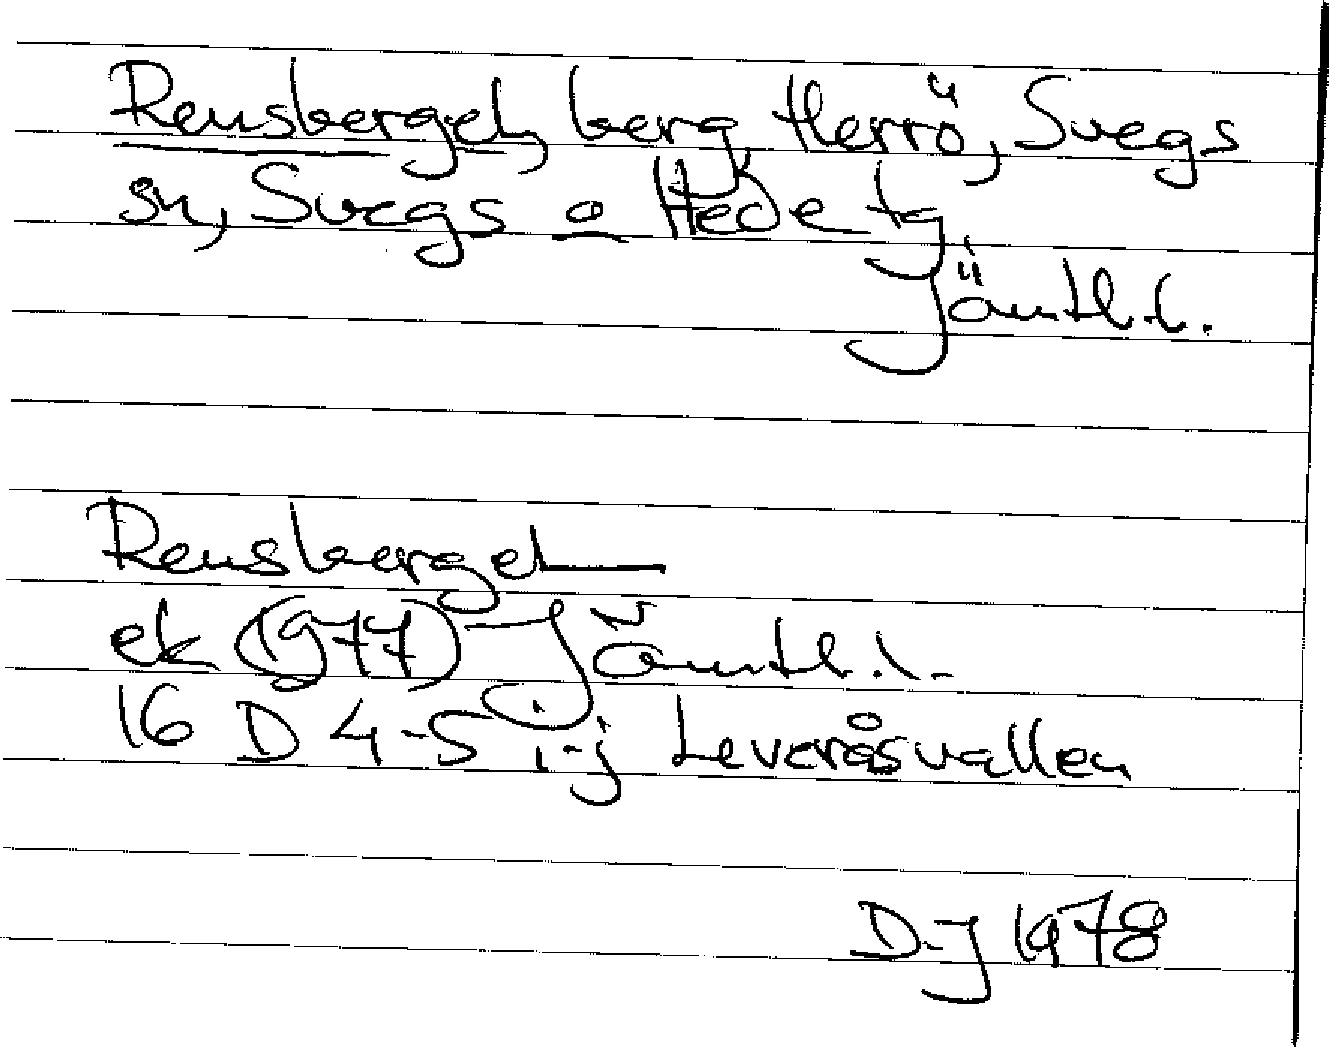 Rensberget, berg, Herrö, Svegs
sn, Svegs o Hede tg
Jämtl.l.
Rensberget
ek (1977) Jämtl.l.
16 D 4-5 i-j Leveråsvallen
D-J 1978